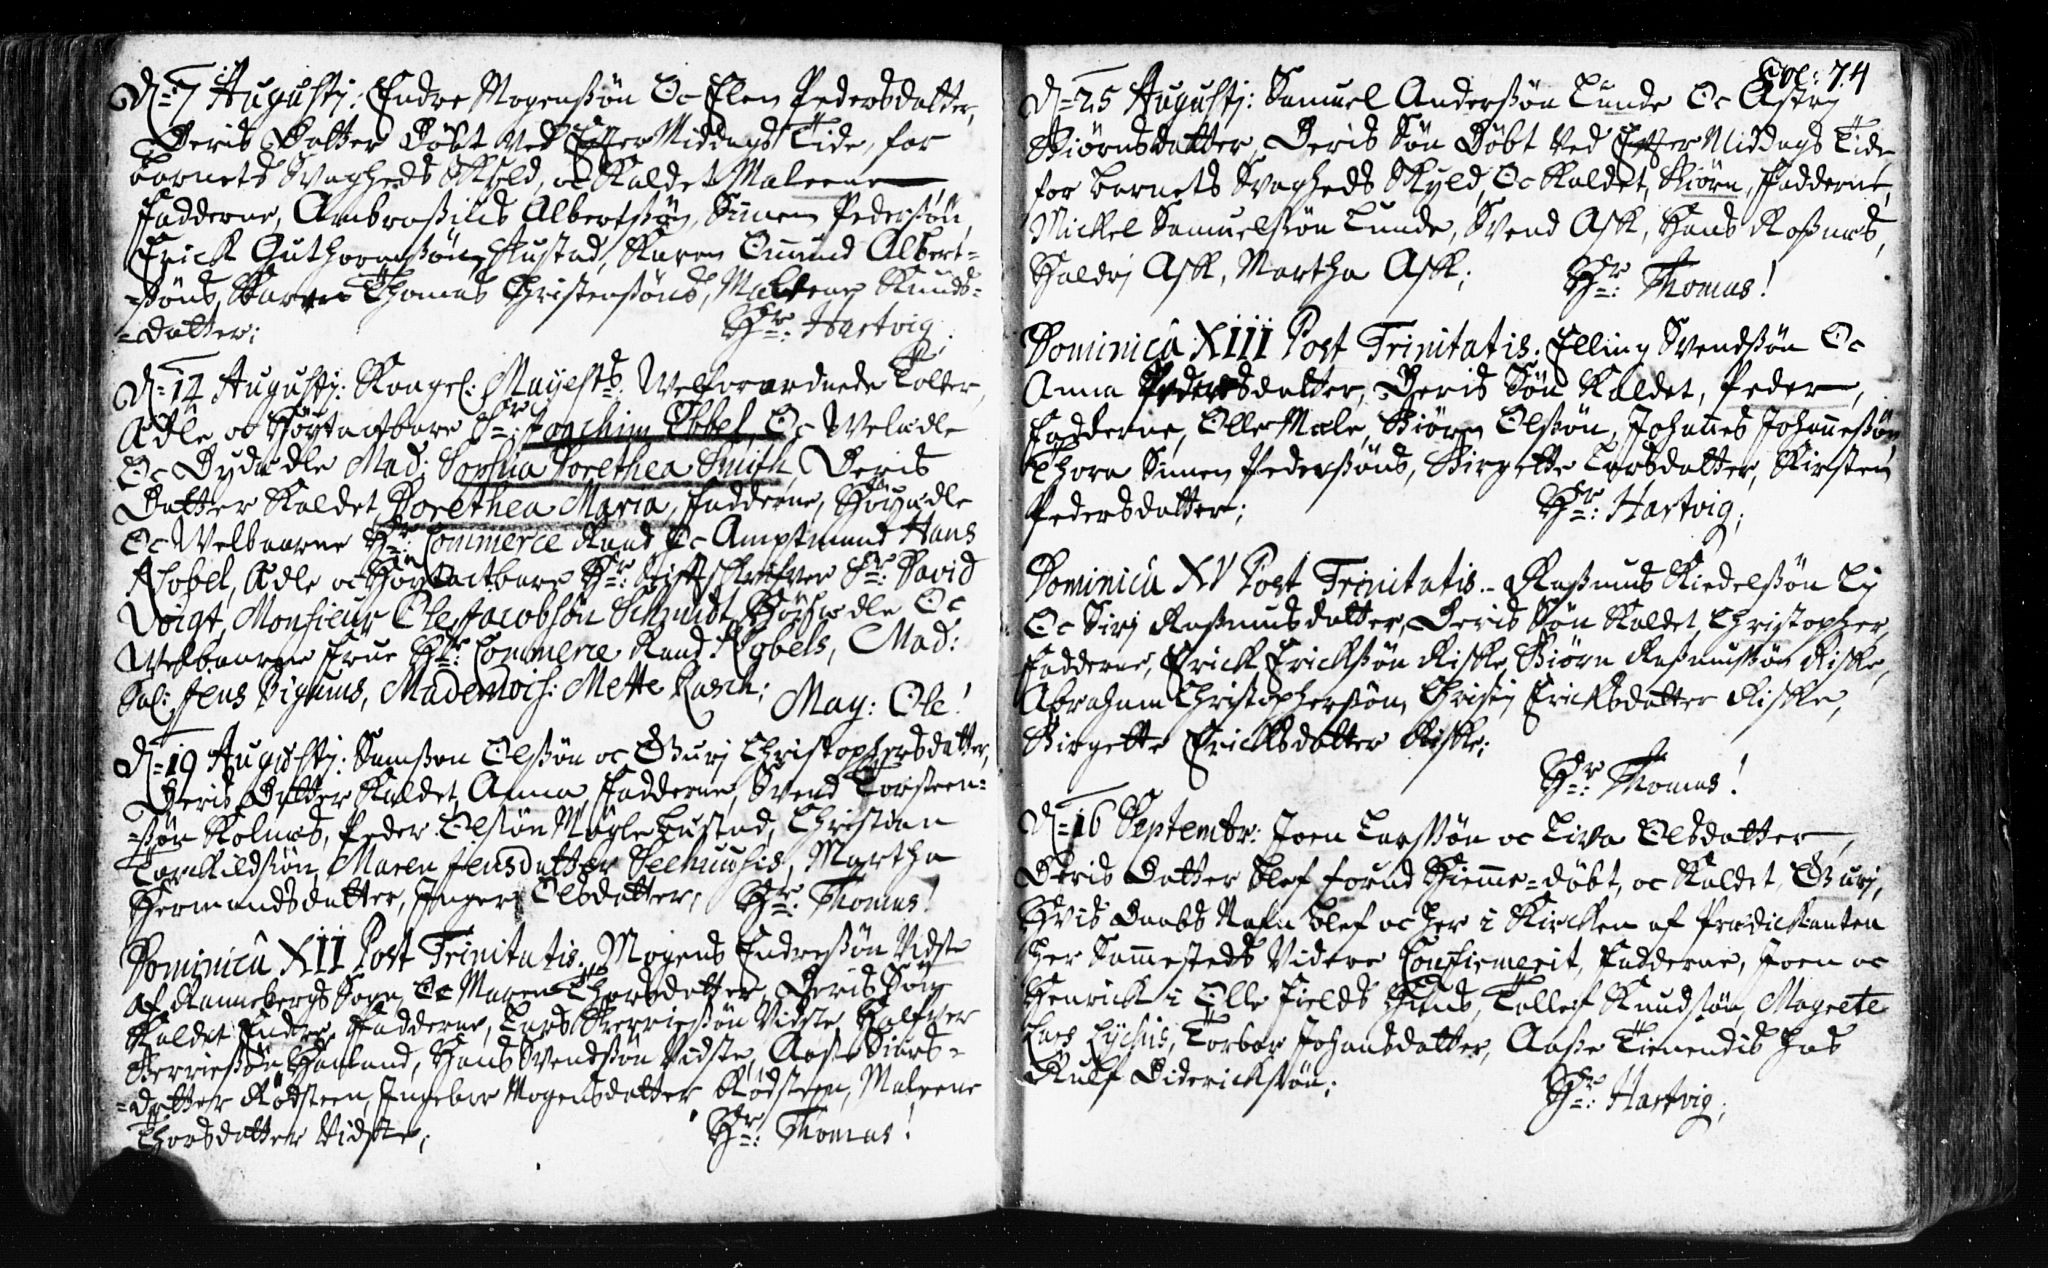 D: 7 Augustj: Endre Mogenssøn Oc Elen Pedersdatter,
Deris Datter Døbt ved Effter Middags Tide, for
barnets Svagheds Skyld, oc Kaldet Maleene
Fadderne, Ambrosius Albertssøn, Simen Pederssøn,
Erick Guthormssøn Austad, Karen Omund Albert-
-ssøns, Karen Thomas Christenssøns, Maleene Knuds-
-datter; Hr: Hartvig;
D: 14 Augustj: Kongel: Mayests Welforordnede Tolder,
Ædle oc Høytactbare Sr: Joachim Ebbel, Oc Welædle
Oc Dydædle Mad: Sophia Dorethea Smith, Deris
Datter Kaldet, Dorethea Maria, Fadderne, Høyædle
Oc Welbaarne Hr: Commerce Raad Oc Amptmand Hans
Nobel, Ædle oc Høytactbare Hr: Stiftskrifver Sr: David
Voigt, Monsieur Ole Jacobsøn Schmidt, Høyædle Oc
Welbaarne Frue Hr: Commerce Raad Nobels, Mad:
Sal: Jens Bigums, Mademois: Mette Rasch; May: Ole!
D: 19 Augustj: Samson Olssøn oc Gurj Christophersdatter,
Deris Datter Kaldet Anna, Fadderne, Svend Torsteen-
-ssøn Kolnæs, Peder Olssøn Møglebustad, Christian
Torckildssøn, Maren Jensdatter Seehuusis, Martha
Hermandsdatter, Inger Olsdatter; Hr: Thomas!
Dominicâ XII Post Trinitatis: Mogens Endressøn Vidste
af Kannebergs Sogn, Oc Maren Thorsdatter, Deris Søn
Kaldet Endre, Fadderne, Lars Sverressøn Vidste, Halfver
Sverressøn Hauland, Hans Svendssøn Vidste, Aasse Siurs-
-datter Rødsteen, Ingebor Mogensdatter Rødsteen, Maleene
Thorsdatter Vidste; Hr: Thomas!
Fol: 74
D: 25 Augustj: Samuel Anderssøn Lunde Oc Astrj
Biørnsdatter, Deris Søn Døbt ved Effter Middags Tide
for barnets Svagheds Skyld, Oc Kaldet, Biørn, Fadderne,
Mickel Samuelssøn Lunde, Svend Ask, Hans Rossnæs,
Haldoj Ask, Martha Ask; Hr: Thomas!
Dominicâ XIII Post Trinitatis: Elling Svendssøn Oc
Anna Pedersdatter, Deris Søn Kaldet, Peder,
Fadderne, Olle Mæle, Biørn Olssøn, Johannes Johannessøn,
Thora Simen Pederssøns, Birgette Larsdatter, Kirsten
Pedersdatter; Hr: Hartvig;
Dominicâ XV Post Trinitatis. Rassmus Kiedelssøn Lj
Oc Sirj Rassmusdatter, Deris Søn Kaldet Christopher,
Fadderne, Erick Erickssøn Riske, Biørn Rassmussøn Riske,
Abraham Christopherssøn, Christj Ericksdatter Riske,
Birgette Ericksdatter Riske; Hr: Thomas!
D: 16 Septembr: Joen Larssøn oc Liva Olsdatter,
Deris Datter blef forud Hiemme-døbt, oc Kaldet, Gurj,
Hvis Daabs Nafn blef oc her i Kircken af Prædickanten
her Sammesteds Videre Confirmerit, Fadderne, Joen oc
Henrick i Olle Fields Huus, Tollef Knudssøn, Magrete
Lars Lychis, Torbor Johansdatter, Aasse Tienendis hos
Rulf Diderickssøn; Hr: Hartvig;